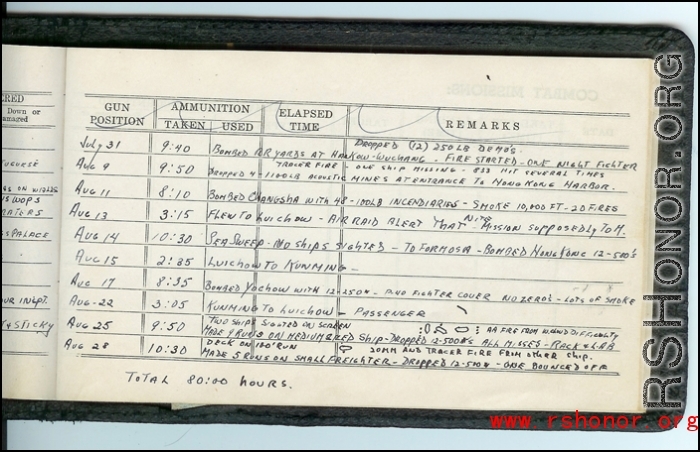 ERED
Down or
amaged
GUN POSITION
AMMUNITION
TAKEN
USED
ELAPSED TIME
REMARKS
July 31 9:40 DROPPED (12) 250LB DEMO'S.
BOMBED RR YARDS AT HANKOW-WUCHANG - FIRE STARTED - ONE NIGHT FIGHTER
Aug 9 9:50 TRACER FIRE - ONE SHIP MISSING - HIT SEVERAL TIMES
DROPPED 4-1100LB ACOUSTIC MINES AT ENTRANCE TO HONG KONG HARBOR.
Aug 11 8:10 BOMBED CHANGSHA WITH 48-100LB INCENDIARIES - SMOKE 10,000 FT - 20 FIRES
Aug 13 3:15 FLEW TO LUICHOW - AIR RAID ALERT THAT NITE MISSION SUPPOSEDLY TO M.
Aug 14 10:30 SEA SWEEP - NO SHIPS SIGHTED - TO FORMOSA - BOMBED HONG KONG 12-500's
Aug 15 2:35 LUICHOW TO KUNMING -
Aug 17 8:35 BOMBED YOCHOW WITH 12-250# - FIGHTER COVER NO ZERO'S - LOTS OF SMOKE
Aug-22 3:05 KUNMING TO LUICHOW - PASSENGER
Aug 25 9:50 TWO SHIPS SIGHTED ON SCREEN AA FIRE FROM DIFFICULTY
MADE 4 RUNS ON MEDIUM SIZED SHIP - DROPPED 12-500#'s ALL MISSED - RACK & LAB
Aug 28 10:30 DECK ON RUN 20MM AND TRACER FIRE FROM OTHER SHIP.
MADE 5 RUNS ON SMALL FREIGHTER - DROPPED 12-500# - ONE BOUNCED OFF
TOTAL 80:00 HOURS.
RSHONOR.ORG
www.rshonor.org